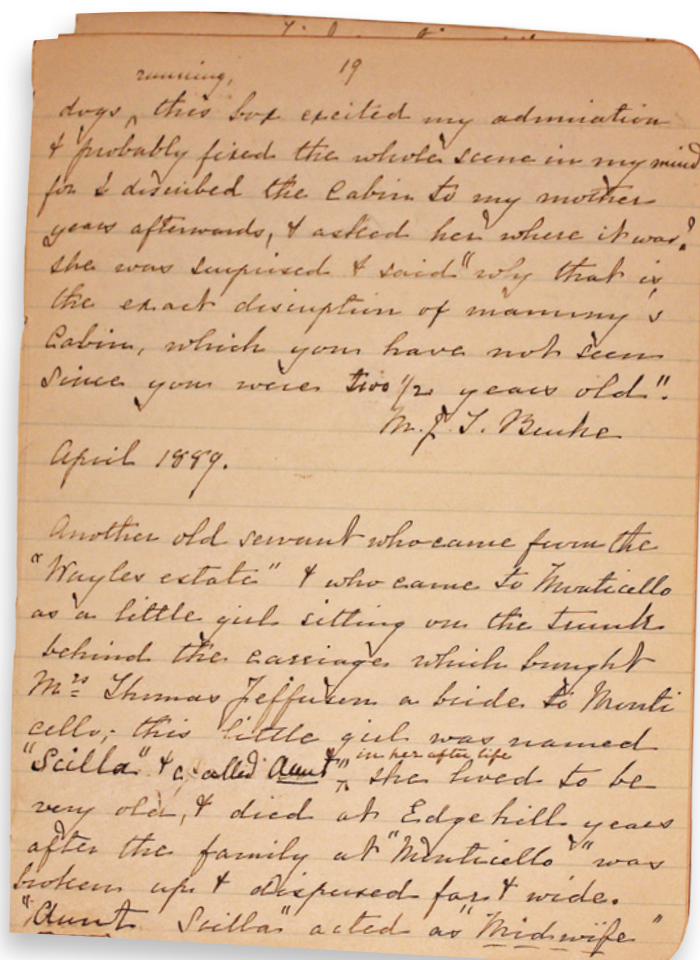 19
running,
dogs ‸ this box excited my admiration
& probably fixed the whole scene in my mind
for I discribed the Cabin to my mother
years afterwards, & asked her where it was?
she was surprised & said "why that is
the exact discription of mammy's
Cabin, which you have not seen
since you were two 1/2 years old".
M. J. T. Burke
April 1889.
Another old servant who came from the
"Wayles estate" & who came to Monticello
as a little girl sitting on the trunk
behind the carriage which brought
Mrs Thomas Jefferson a bride to Monti
cello; this little girl was named
in her after life
"Scilla" & called Aunt" ‸ she lived to be
very old, & died at Edgehill years
after the family at "Monticello" was
broken up & dispersed far & wide.
"Aunt Scilla" acted as "Midwife"